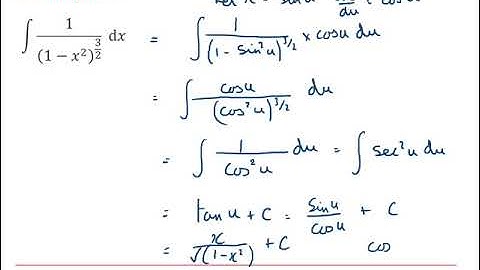 Let x = sin u   dx/du = cos u
∫ 1/(1 − x²)^(3/2) dx = ∫ 1/(1 − sin²u)^(3/2) × cos u du
= ∫ cos u/(cos²u)^(3/2) du
= ∫ 1/cos²u du = ∫ sec²u du
= tan u + C = sin u/cos u + C
= x/√(1−x²) + C   cos